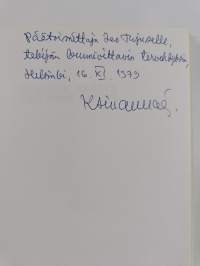 Päätoimittaja Jes Pajuselle,
tekijän kunnioittavin tervehdyksin,
Helsinki, 16 XI. 1979